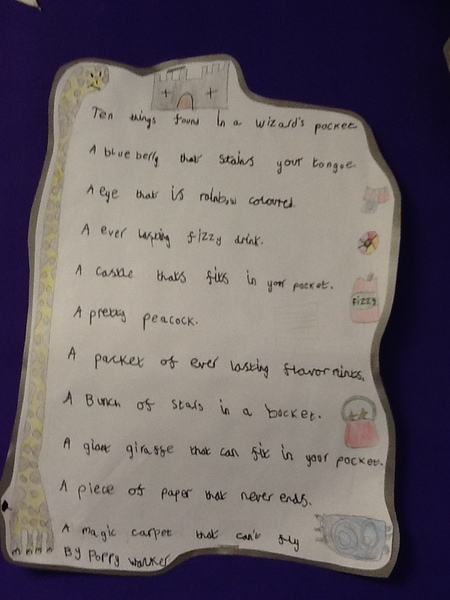 Ten things found in a wizard's pocket
A blue berry that stains your tongue.
A eye that is rainbow coloured.
A ever lasting fizzy drink.
A castle thats fits in your pocket.
FIZZY
A pretty peacock.
A packet of ever lasting flavor mints.
A Bunch of stars in a bocket.
A giant giraffe that can fit in your pocket.
A piece of paper that never ends.
A magic carpet that can't fly
By Poppy